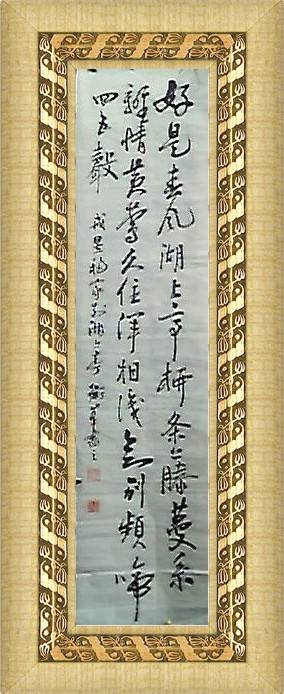 好是春风湖上亭柳条藤蔓系
离情黄莺久住浑相识欲别频啼
四五声
戎昱移家别湖上亭